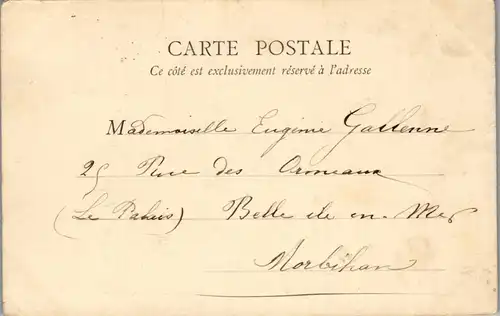 CARTE POSTALE
Ce côté est exclusivement réservé à l'adresse
Mademoiselle Eugénie Gallenne
25 Rue des Ormeaux
(Le Palais) Belle ile en Mer
Morbihan